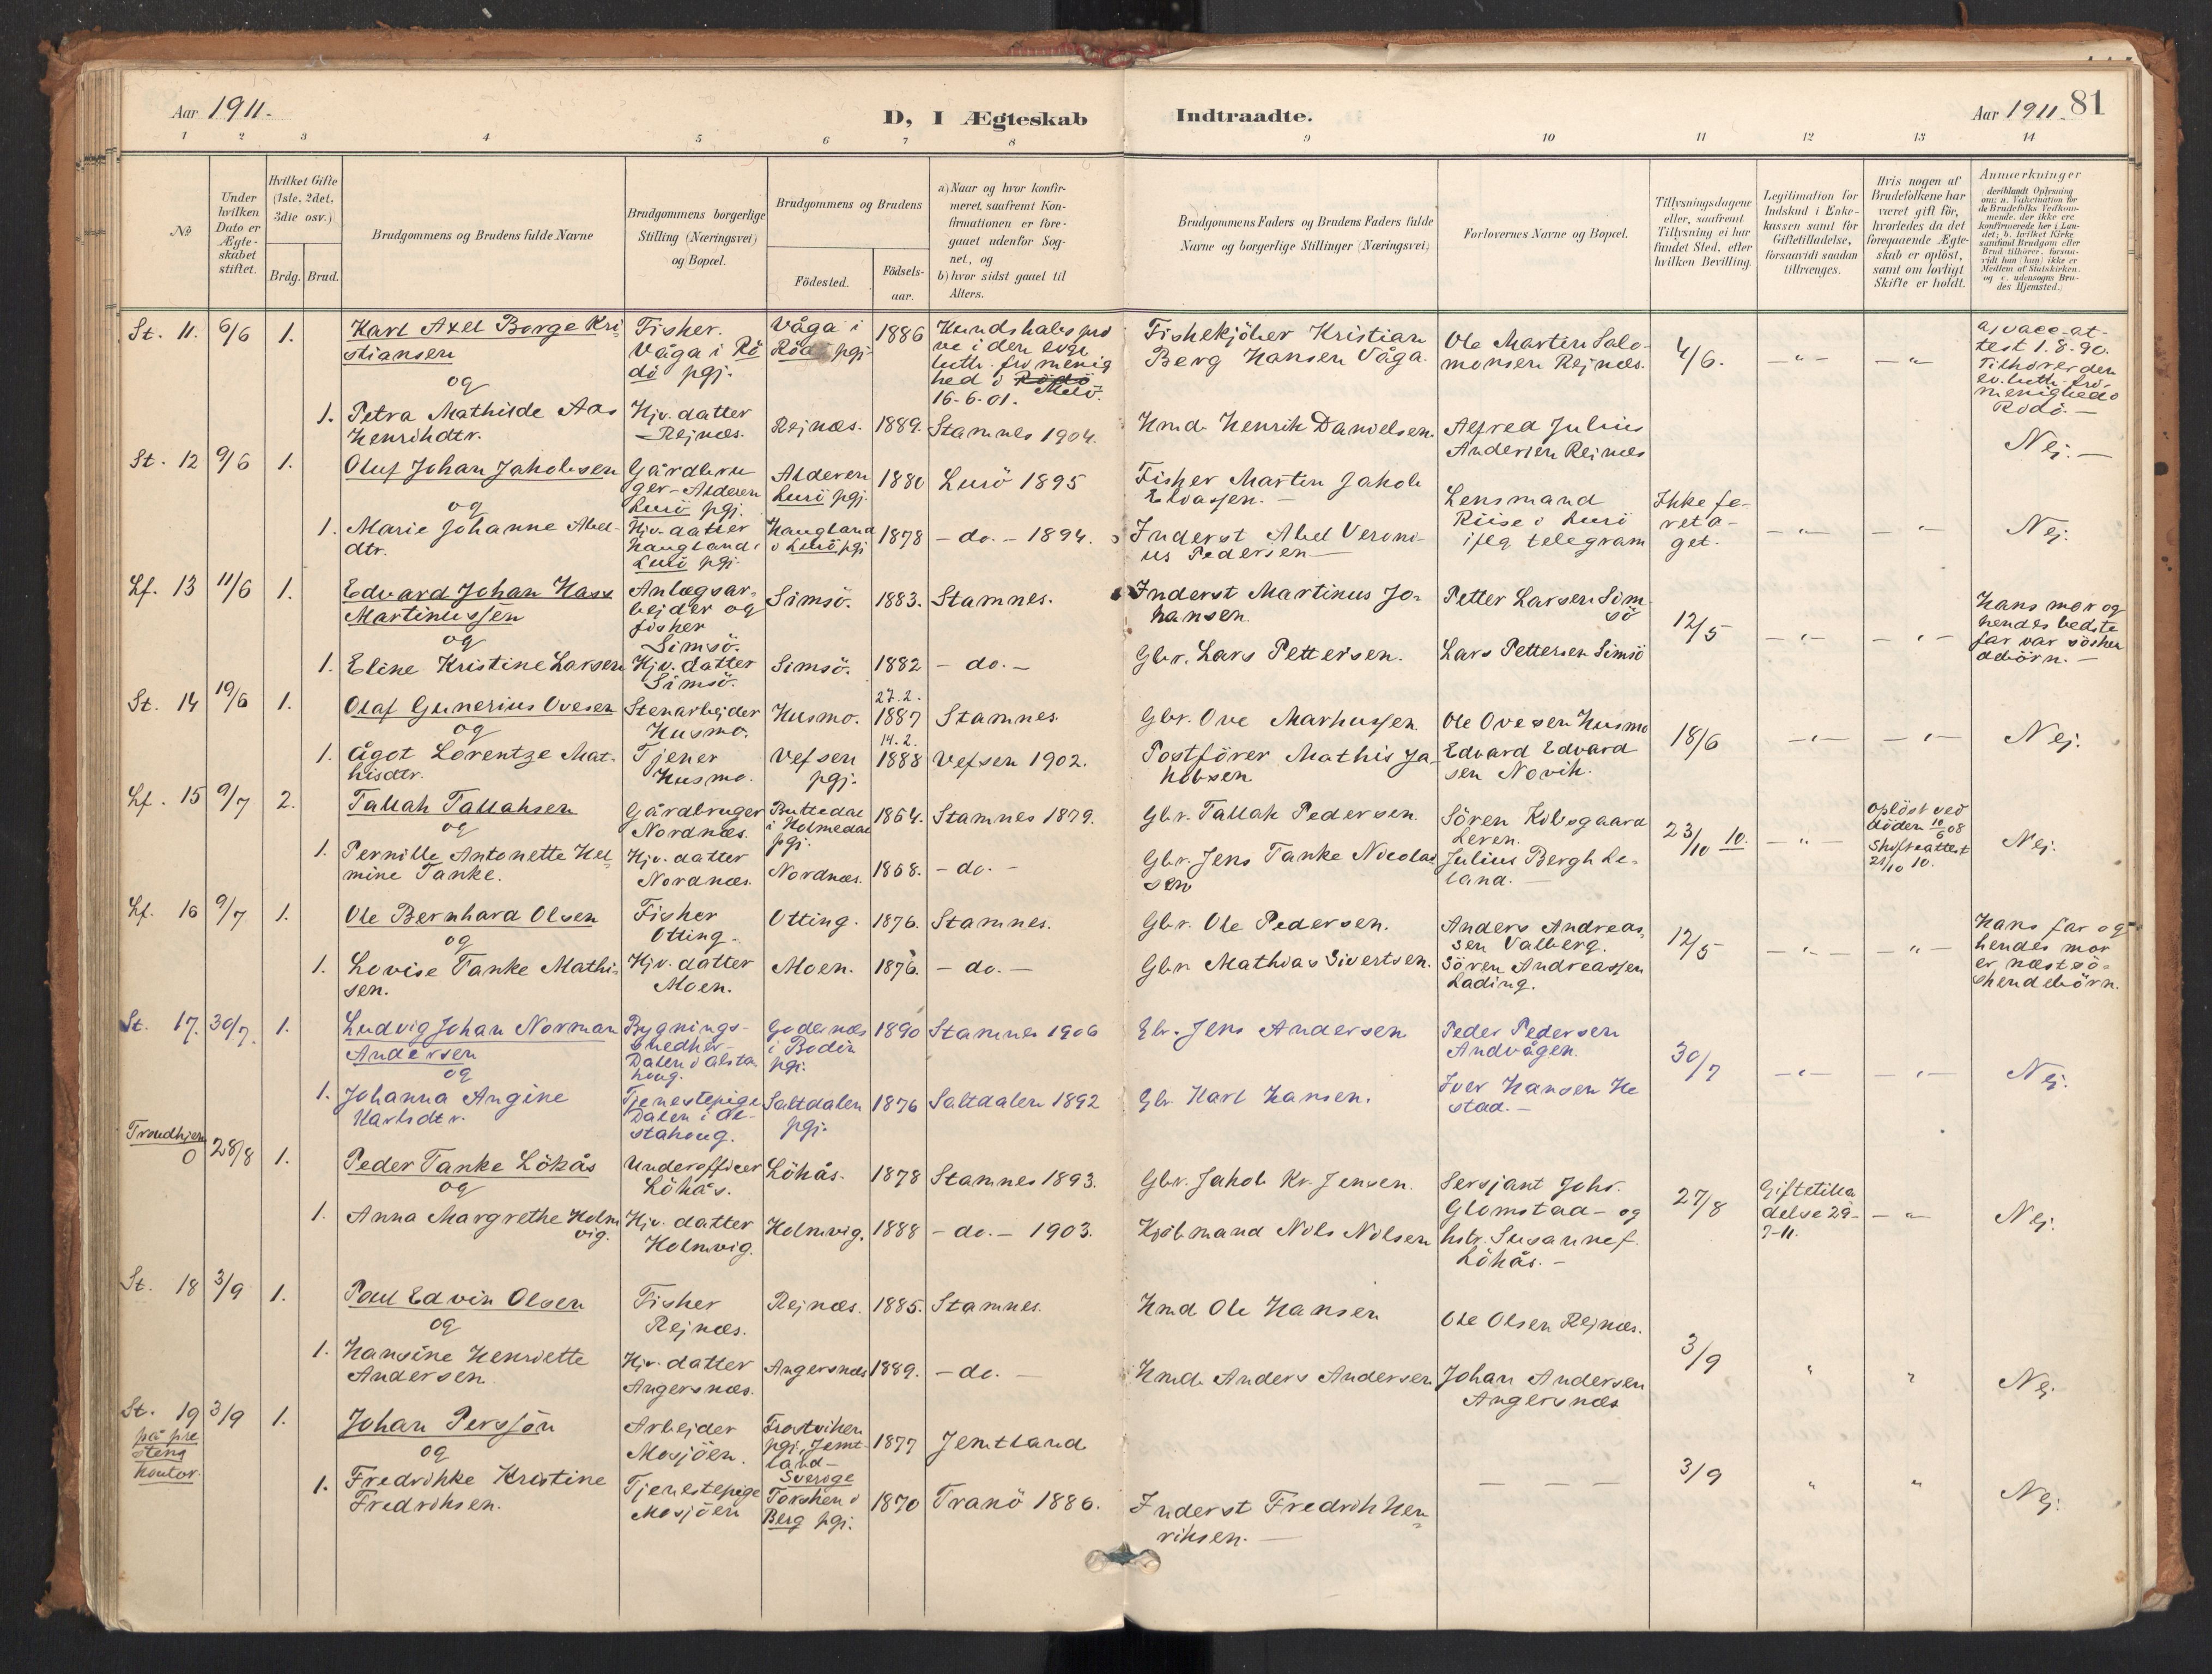 Aar 1911.
D, I Ægteskab Indtraadte.
Aar 1911. 81
1 2 3 4 5 6 7 8 9 10 11 12 13 14
No
Under hvilken Dato er Ægteskabet stiftet.
Hvilket Gifte (1ste, 2det, 3die osv.)
Brdg. Brud.
Brudgommens og Brudens fulde Navne
Brudgommens borgerlige Stilling (Næringsvei) og Bopæl.
Brudgommens og Brudens
Fødested.
Fødselsaar.
a) Naar og hvor konfirmeret, saafremt Konfirmationen er foregaaet udenfor Sognet, og
b) hvor sidst gaaet til Alters.
Brudgommens Faders og Brudens Faders fulde Navne og borgerlige Stillinger (Næringsvei)
Forlovernes Navne og Bopæl.
Tillysningsdagene eller, saafremt Tillysning ei har fundet Sted, efter hvilken Bevilling.
Legitimation for Indskud i Enkekassen samt for Giftetilladelse, forsaavidt saadan tiltrænges.
Hvis nogen af Brudefolkene har været gift før, hvorledes da det foregaaende Ægteskab er opløst, samt om lovligt Skifte er holdt.
Anmærkninger
deriblandt Oplysning om: a. Vakcination for de Brudefolks Vedkommende, der ikke ere konfirmerede her i Landet; b. hvilket Kirkesamfund Brudgom eller Brud tilhører, forsaavidt han (hun) ikke er Medlem af Statskirken, og c. udensogns Brudes Hjemsted.)
St. 11. 6/6 1. Karl Axel Borge Kristiansen
og
Fisker. Våga i Rödö pgj.
Våga i Rödö pgj.
1886
Kundskabsprove i den evge luth. frimenighed i Rödö Melö. 16-6-01.
Fiskekjöber Kristian Berg Hansen Våga.
Ole Martin Salomonsen Rejnæs.
4/6. -"- -"-
a) vacc. attest 1.8.90. Tilhører den ev. luth. frimenighed i Rödö.-
1. Petra Mathilde Aas Henrikdtr.
Hjv. datter Rejnæs.
Rejnæs. 1889. Stamnes 1904.
Kmd. Henrik Danielsen.
Alfred Julius Andersen Reinæs
Nej.-
St. 12 9/6 1. Oluf Johan Jakobsen
og
Gårdbruger-Alderen Lurö pgj.
Alderen Lurö pgj.
1880 Lurö 1895
Fisker Martin Jakob Eliassen.-
Lensmand Riise i Lurö iflg telegram
Ikke foretaget.
-"- -"- Nej.
1. Marie Johanne Abeldtr.
Hjv. datter Haugland i Lurö pgj.
Haugland i Lurö pgj
1878 -do.- 1894.
Inderst Abel Veronius Pedersen
Lf. 13 11/6 1. Edvard Johan Hass Martinussen
og
Anlægsarbejder og fisker Simsö.
Simsö. 1883. Stamnes.
Inderst Martinus Johansen.
Petter Larsen Simsö
12/5 -"- -"-
Hans mor og hendes bedstefar var söskendebörn.-
1. Eline Kristine Larsen
Hjv. datter Simsö.
Simsö. 1882 -do.-
Gbr. Lars Pettersen.
Lars Pettersen Simsö
St. 14 19/6 1. Olaf Gunerius Ovesen
og
Stenarbejder Husmo.
Husmo. 27.2. 1887 Stamnes.
Gbr. Ove Markussen.
Ole Ovesen Husmo
18/6 -"- -"- Nej.
1. Ågot Lorentze Mathisdtr.
Tjener Husmo.
Vefsen pgj.
14.2. 1888 Vefsen 1902.
Postförer Mathis Jakobsen
Edvard Edvardsen Novik.
Lf. 15 9/7 2. Tallak Tallaksen
og
Gårdbruger Nordnæs.
Buttedal i Holmedal pgj.
1864. Stamnes 1879.
Gbr. Tallak Pedersen.
Sören Kibsgaard Leren.
23/10 10. -"-
Oplöst ved döden 10/6 08 Skifteattest 21/10 10.
Nej.
1. Pernille Antonette Helmine Tanke.
Hjv. datter Nordnæs.
Nordnæs. 1868. -do.-
Gbr. Jens Tanke Nicolaisen
Julius Bergh Leland.-
Lf. 16 9/7 1. Ole Bernhard Olsen
og
Fisker Otting.
Otting. 1876. Stamnes.
Gbr. Ole Pedersen.
Anders Andreassen Valberg.
12/5 -"- -"-
Hans far og hendes mor er næstsöskendebörn.
1. Lovise Tanke Mathisen.
Hjv. datter Moen.
Moen. 1876. -do.-
Gbr. Mathias Sivertsen.
Sören Andreassen Lading.
St. 17. 30/7. 1. Ludvig Johan Norman Andersen
og
Bygningssnedker Dalen i Alstahoug.
Godenæs i Bodin pgj.
1890 Stamnes 1906
Gbr. Jens Andersen
Peder Pedersen Andvågen.
30/7 -"- -"- Nej.
1. Johanna Angine Karlsdtr.
Tjenestepige Dalen i Alstahoug.
Saltdalen pgj.
1876 Saltdalen 1892
Gbr Karl Hansen.
Iver Hansen Hestad.-
Trondhjem
0 28/8 1. Peder Tanke Lökås
og
Underofficer Lökås.
Lökås. 1878 Stamnes 1893.
Gbr. Jakob Kr. Jensen.
Sersjant Johs. Glomstad- og hstr. Susanne f. Lökås.-
27/8 Giftetilladelse 29-7-11. -"- Nej.
1. Anna Margrethe Holmvig.
Hjv. datter Holmvig.
Holmvig. 1888 -do.- 1903.
Kjöbmand Nils Nilsen
St. 18 3/9 1. Poul Edvin Olsen
og
Fisker Rejnæs.
Rejnæs. 1885. Stamnes.
Kmd Ole Hansen
Ole Olsen Rejnæs.
3/9 " " Nej.
1. Hansine Henriette Andersen.
Hjv. datter Angersnæs.
Angersnæs 1889. -do.-
Kmd. Anders Andersen
Johan Andersen Angersnæs
St. 19 3/9 1. Johan Persson
på prestens kontor.
og
Arbejder Mosjöen.
Frostviken pgj. Jemtland- Sverige
1877 Jemtland
- - -
3/9 " " Nej.
1. Fredrikke Kristine Fredriksen.
Tjenestepige Mosjöen
Torsken i Berg pgj.
1870 Tranö 1886.
Inderst Fredrik Henriksen.-